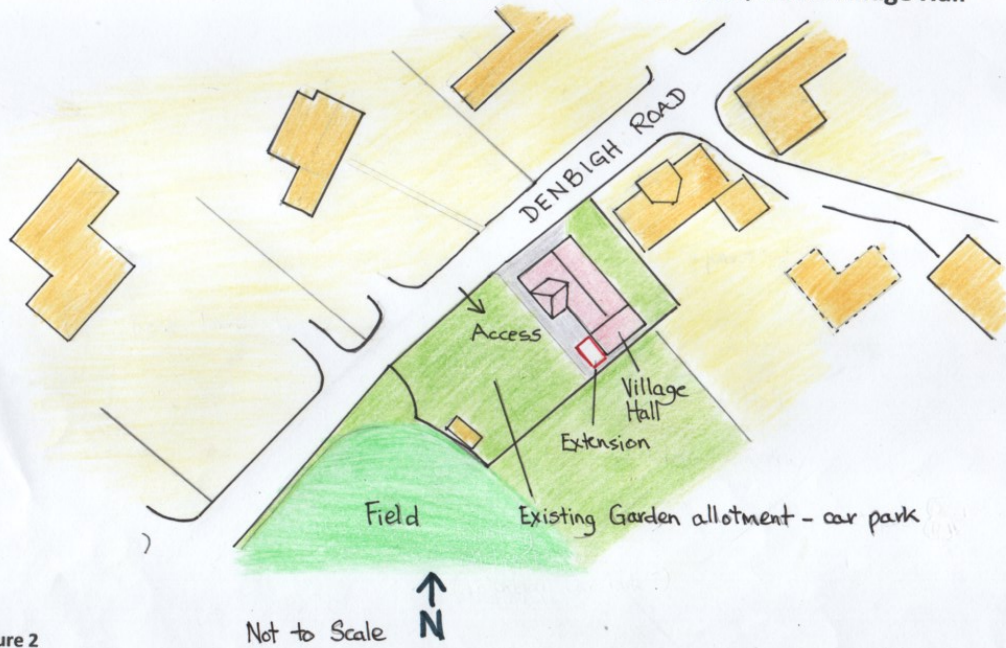 Hall
DENBIGH ROAD
Access
Village
Hall
Extension
Field
Existing Garden allotment - car park
Not to Scale
N
ure 2